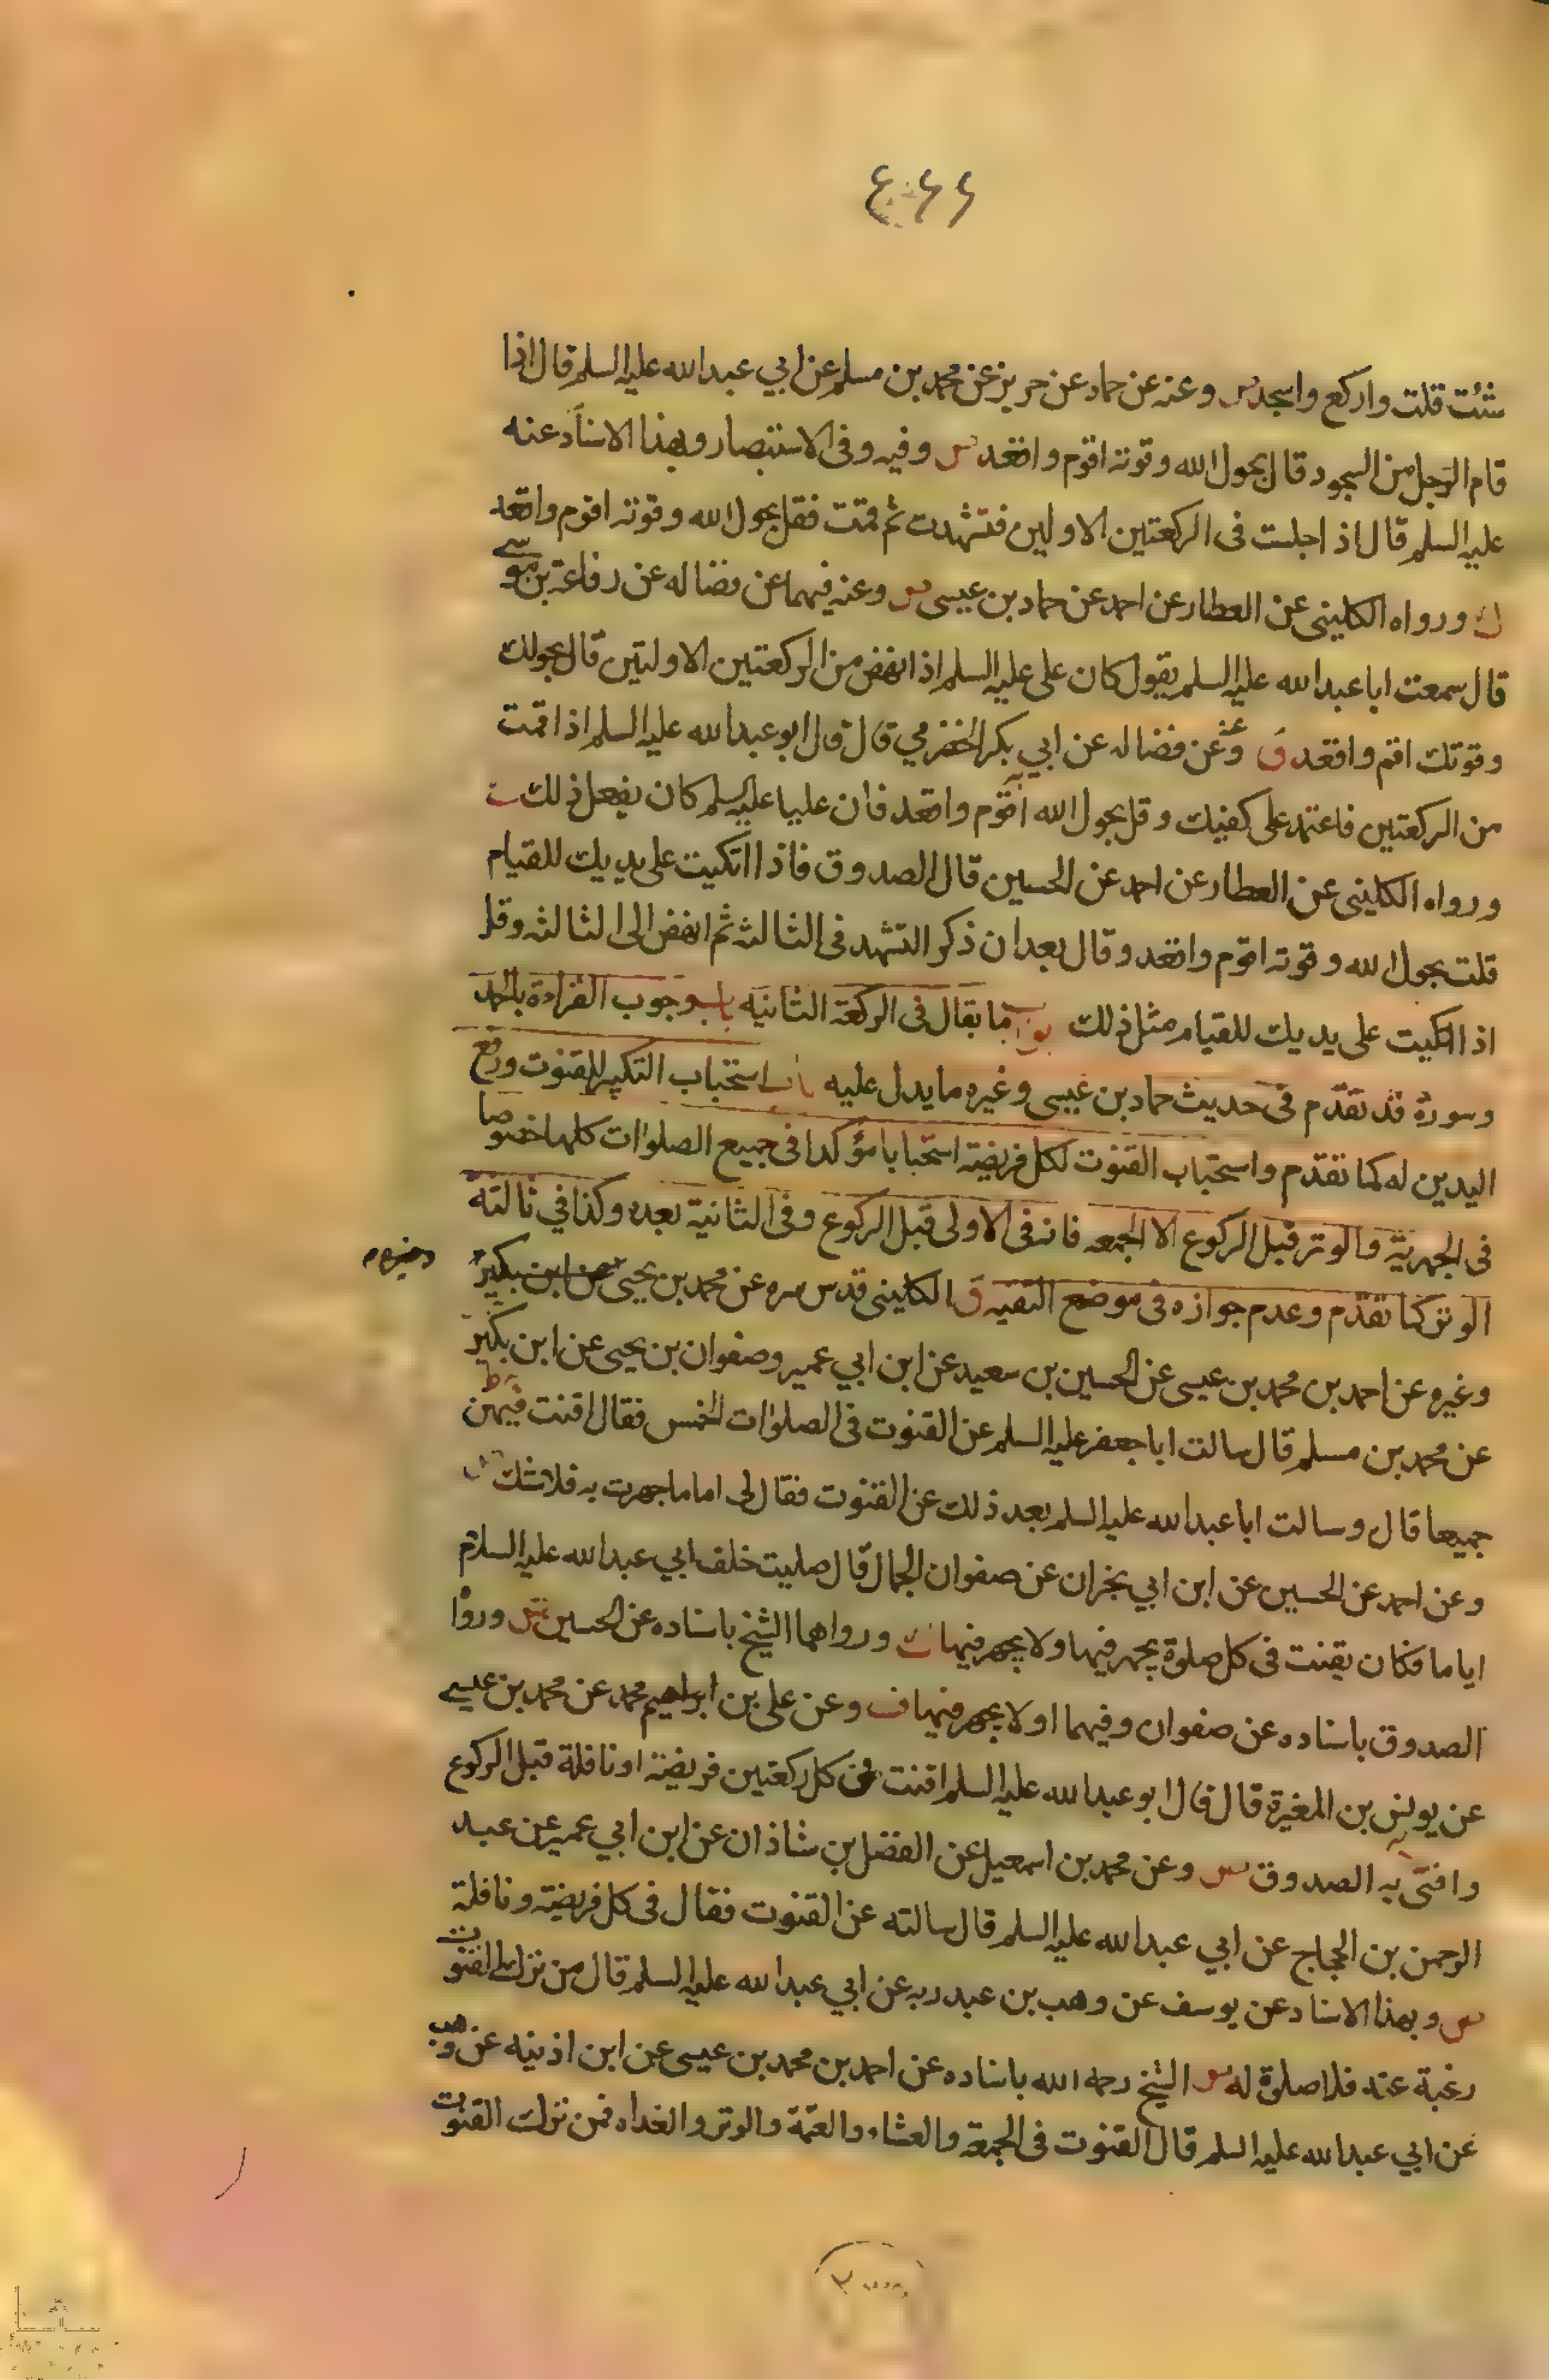 شئت قلت واركع واسجد س وعنه عن حماد عن حريز عن محمد بن مسلم عن ابي عبدالله عليه السلم قال اذا
قام الرجل من السجود قال بحول الله وقوته اقوم واقعد س وفيه وفى الاستبصار وبهذا الاسناد عنه
عليه السلم قال اذا جلست فى الركعتين الاوليين فتشهدت ثم قمت فقل بحول الله وقوته اقوم واقعد
ورواه الكلينى عن العطار عن احمد عن حماد بن عيسى س وعنه فيهما عن فضاله عن رفاعة بن موسى
قال سمعت ابا عبدالله عليه السلم يقول كان على عليه السلم اذا نهض من الركعتين الاولتين قال بحولك
وقوتك اقوم واقعد ق وعنه عن فضاله عن ابي بكر الحضرمي قال قال ابو عبدالله عليه السلم اذا قمت
من الركعتين فاعتمد على كفيك وقل بحول الله اقوم واقعد فان عليا عليه السلم كان يفعل ذلك
ورواه الكلينى عن العطار عن احمد عن الحسين قال الصدوق فاذا اتكيت على يديك للقيام
قلت بحول الله وقوته اقوم واقعد وقال بعد ان ذكر التشهد فى الثالثه ثم انهض الى الثالثه وقل
اذا اتكيت على يديك للقيام مثل ذلك ابواب ما يقال فى الركعة الثانيه باب وجوب القراءة بالحمد
وسورة قد تقدم فى حديث حماد بن عيسى وغيره ما يدل عليه باب استحباب التكبير للقنوت ورفع
اليدين له كما تقدم واستحباب القنوت لكل فريضة استحبابا مؤكدا فى جميع الصلوات كلها خصوصا
فى الجهرية والوتر قبل الركوع الا الجمعه فانه فى الاولى قبل الركوع وفى الثانية بعده وكذا في ثالثه
الوتر كما تقدم وعدم جوازه فى موضع التقيه ق الكلينى قدس سره عن محمد بن يحيى عن ابن بكير
وغيره عن احمد بن محمد بن عيسى عن الحسين بن سعيد عن ابن ابي عمير وصفوان بن يحيى عن ابن بكير
عن محمد بن مسلم قال سالت ابا جعفر عليه السلم عن القنوت فى الصلوات الخمس فقال اقنت فيهن
جميعا قال وسالت ابا عبدالله عليه السلم بعد ذلك عن القنوت فقال لى اما ما جهرت به فلا شك
وعن احمد عن الحسين عن ابن ابي نجران عن صفوان الجمال قال صليت خلف ابي عبدالله عليه السلام
اياما فكان يقنت فى كل صلوة يجهر فيها ولا يجهر فيها ورواهما الشيخ باسناده عن الحسين س وروا
الصدوق باسناده عن صفوان وفيهما او لا يجهر فيها ف وعن على بن ابراهيم عن محمد بن عيسى
عن يونس بن المغيرة قال قال ابو عبدالله عليه السلم اقنت فى كل ركعتين فريضة او نافلة قبل الركوع
وافتى به الصدوق س وعن محمد بن اسمعيل عن الفضل بن شاذان عن ابن ابي عمير عن عبد
الرحمن بن الحجاج عن ابي عبدالله عليه السلم قال سالته عن القنوت فقال فى كل فريضة ونافلة
س وبهذا الاسناد عن يوسف عن وهب بن عبدربه عن ابي عبدالله عليه السلم قال من ترك القنوت
رغبة عنه فلا صلوة له س الشيخ رحمه الله باسناده عن احمد بن محمد بن عيسى عن ابن اذنيه عن وهب
عن ابي عبدالله عليه السلم قال القنوت فى الجمعة والعشاء والعتمة والوتر والغداه فمن ترك القنوت